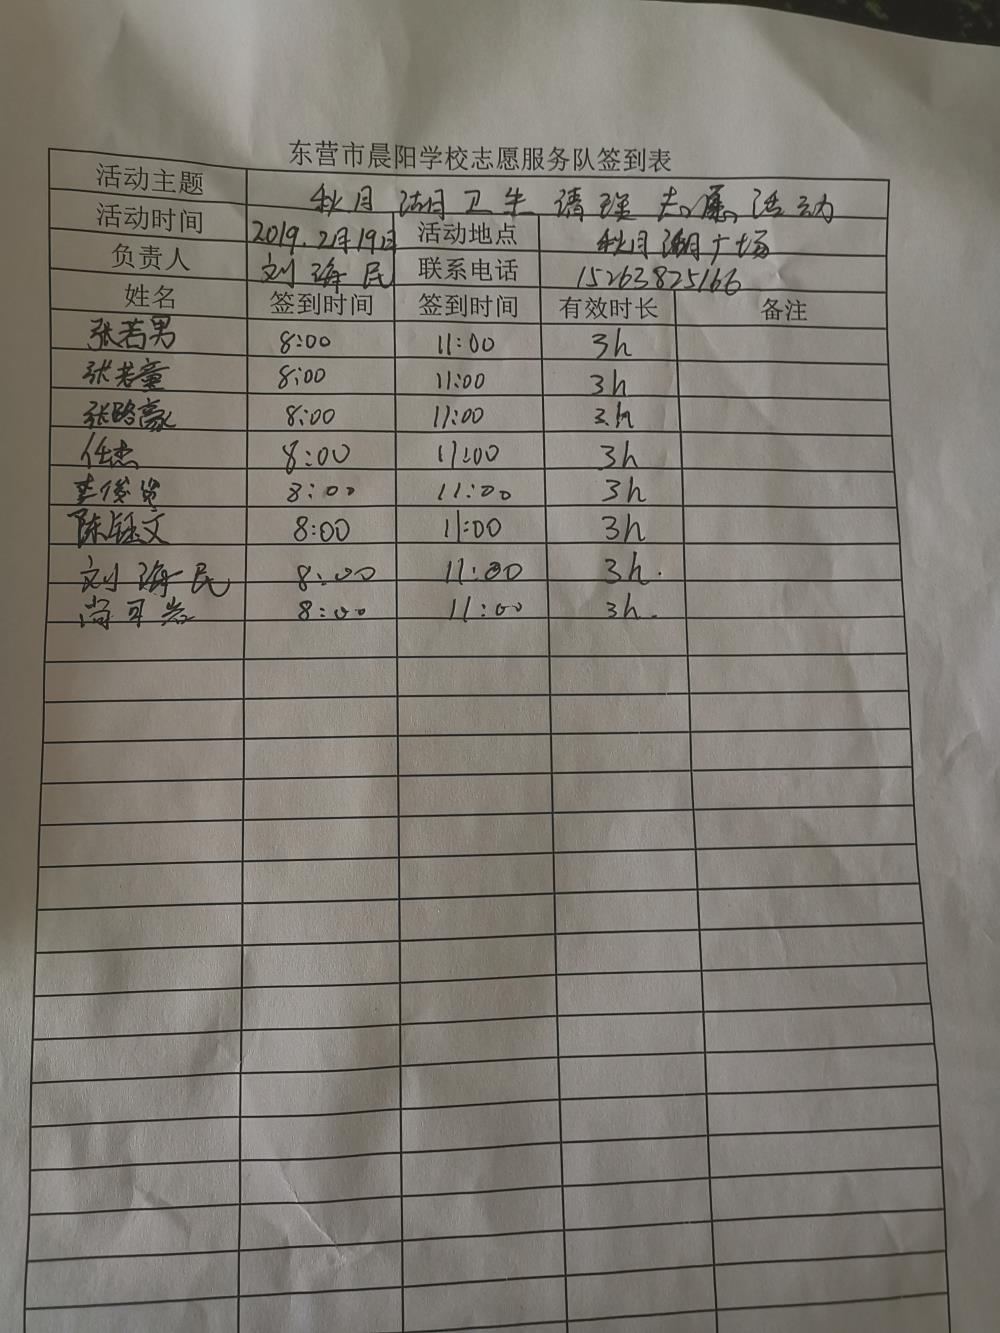 东营市晨阳学校志愿服务队签到表
活动主题 秋月湖卫生清理志愿活动
活动时间 2019.2月19日 活动地点 秋月湖广场
负责人 刘海民 联系电话 15263825166
姓名 签到时间 签到时间 有效时长 备注
张若男 8:00 11:00 3h
张若童 8:00 11:00 3h
张路豪 8:00 11:00 3h
任杰 8:00 11:00 3h
李俊 8:00 11:00 3h
陈钰文 8:00 11:00 3h
刘海民 8:00 11:00 3h.
尚可岩 8:00 11:00 3h.